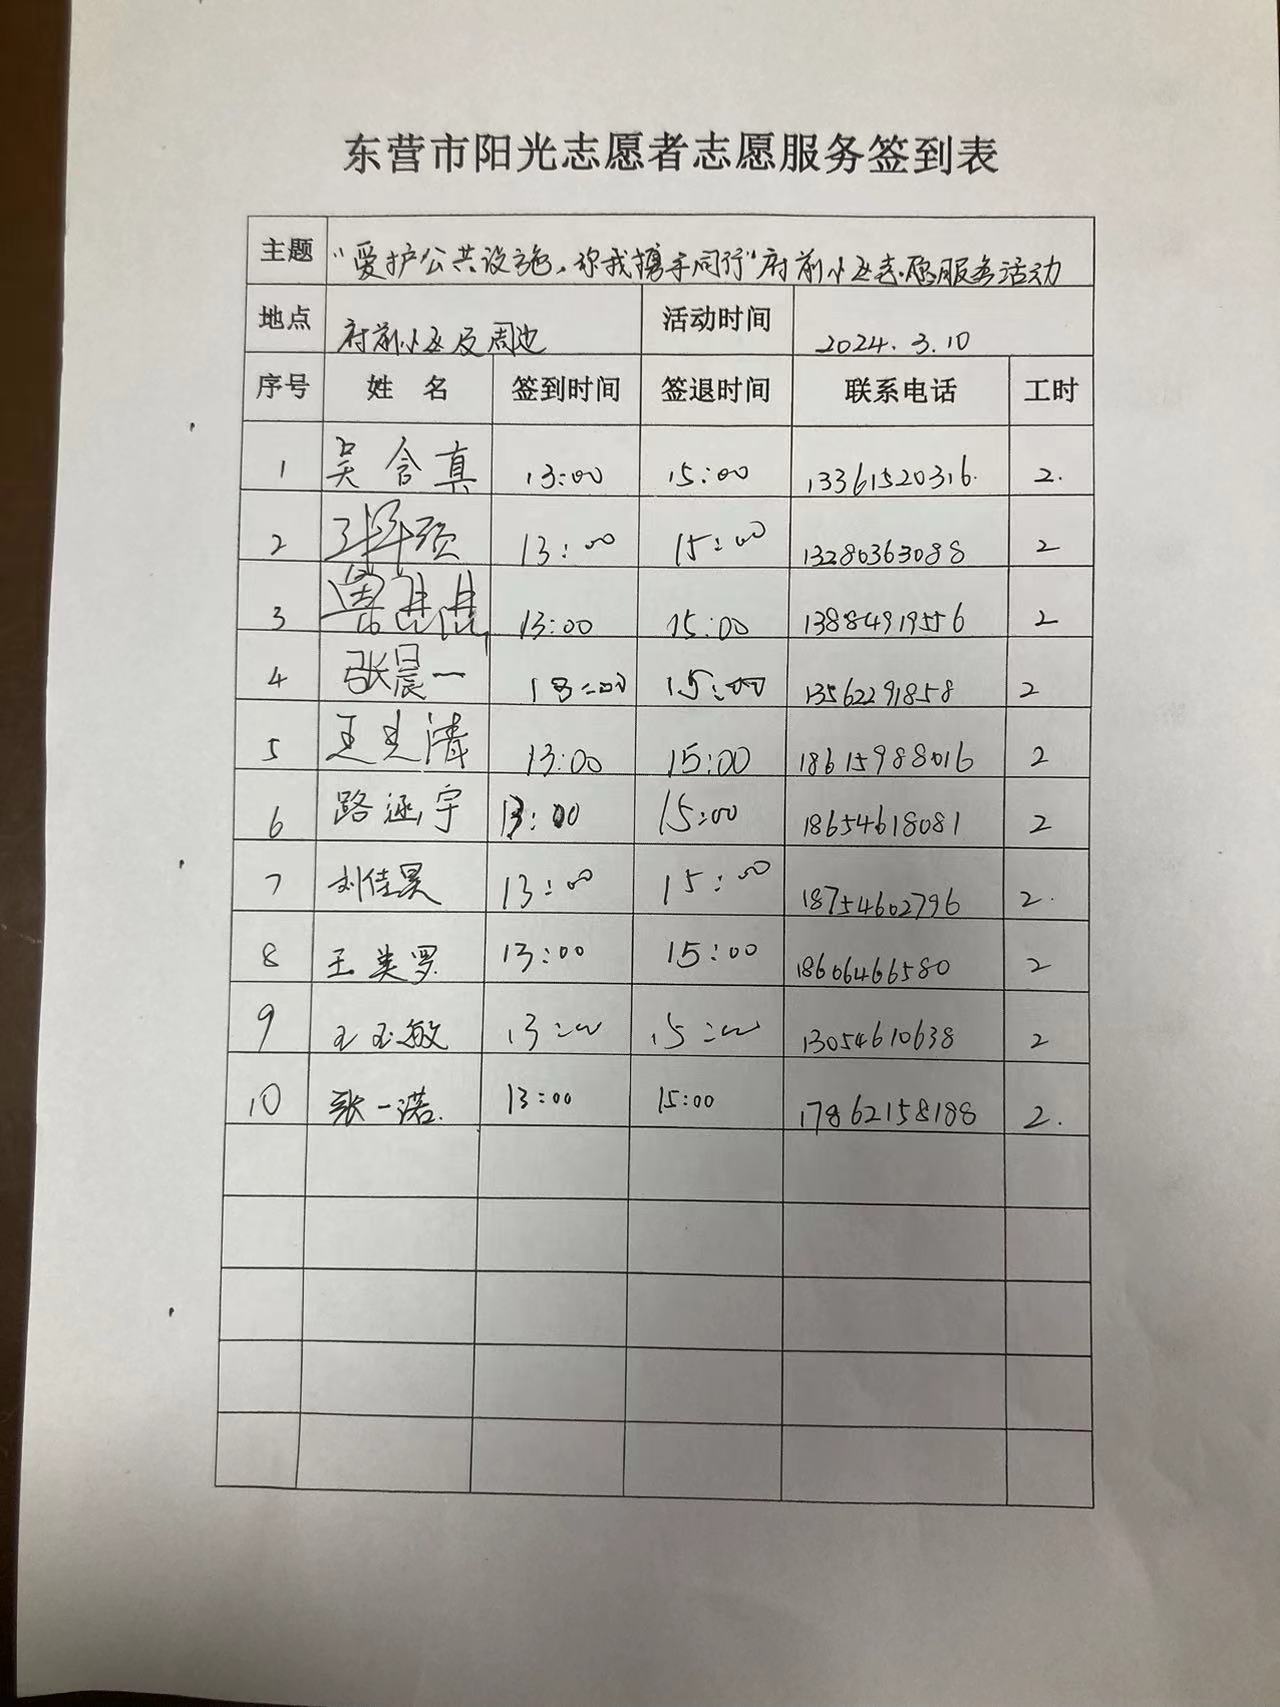 东营市阳光志愿者志愿服务签到表
主题 "爱护公共设施,你我携手同行"府前小区志愿服务活动
地点 府前小区及周边 活动时间 2024.3.10
序号 姓 名 签到时间 签退时间 联系电话 工时
1 吴含真 13:00 15:00 13361520316. 2.
2 13:00 15:00 13280363088 2
3 13:00 15:00 13884919556 2
4 张晨一 13:00 15:00 13562291858 2
5 13:00 15:00 18615988016 2
6 路涵宇 13:00 15:00 18654618081 2
7 刘佳昊 13:00 15:00 18754602796 2.
8 王 13:00 15:00 18606466580 2
9 王玉敏 13:00 15:00 13054610638 2
10 张一诺. 13:00 15:00 17862158188 2.